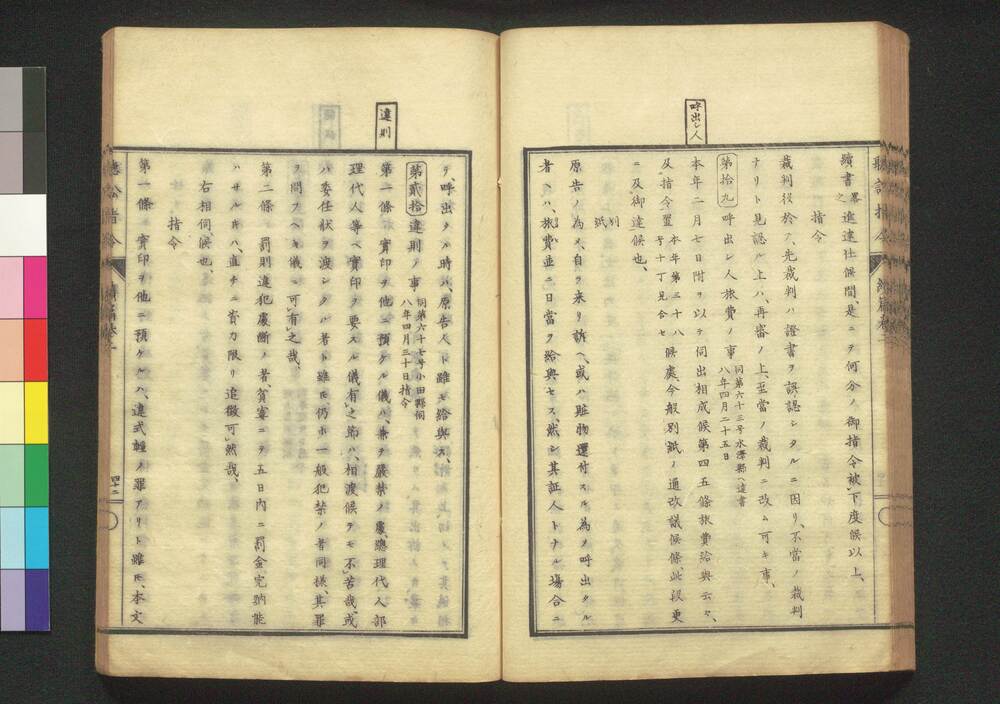 呼出シ人
續書畧之進達仕候間、是ニテ何分ノ御指令被下度候以上、
指令
裁判役於テ、先裁判ハ證書ヲ誤認シタルニ因リ、不當ノ裁判
ナリト見認ル上ハ、再審ノ上、至當ノ裁判ニ改ム可キ事、
第拾九 呼出シ人旅費ノ事 同第六十三号水澤縣ヘ達書 八年四月二十五日
本年二月七日附ヲ以テ伺出相成候第四五條旅費給與云々、
及指令置 本年第三十八号十丁見合セ 候處今般別紙ノ通改議候條、此段更
ニ及御達候也、
別紙
原告ノ為メ、自ラ来リ訴ヘ、或ハ賍物還付スル為メ呼出タル
者ヘハ、旅費並ニ日當ヲ給與セス、然シ其証人トナル場合ニ
違則
ヲ、呼出タル時ハ、原告人ト雖モ給與ス、
第貳拾 違則ノ事 同第六十七号小田縣伺 八年四月三十日指令
第一條 實印ヲ他ニ預クル儀ハ、兼テ嚴禁ノ處、總理代人部
理代人等ヘ實印ヲ要スル儀有之節ハ、相渡候テモ不苦哉、或
ハ委任狀ヲ渡シタル者ト雖モ仍ホ一般犯禁ノ者同様、其罪
ヲ問フヘキ儀ニ可有之哉、
第二條 罰則違犯處斷ノ者、貧窶ニテ五日内ニ罰金完納能
ハサルキハ、直チニ資力限リ追徴可然哉、
右相伺候也、
指令
第一條 實印ヲ他ニ預ケルハ、違式輕ノ罪アリト雖モ、本文
四十二